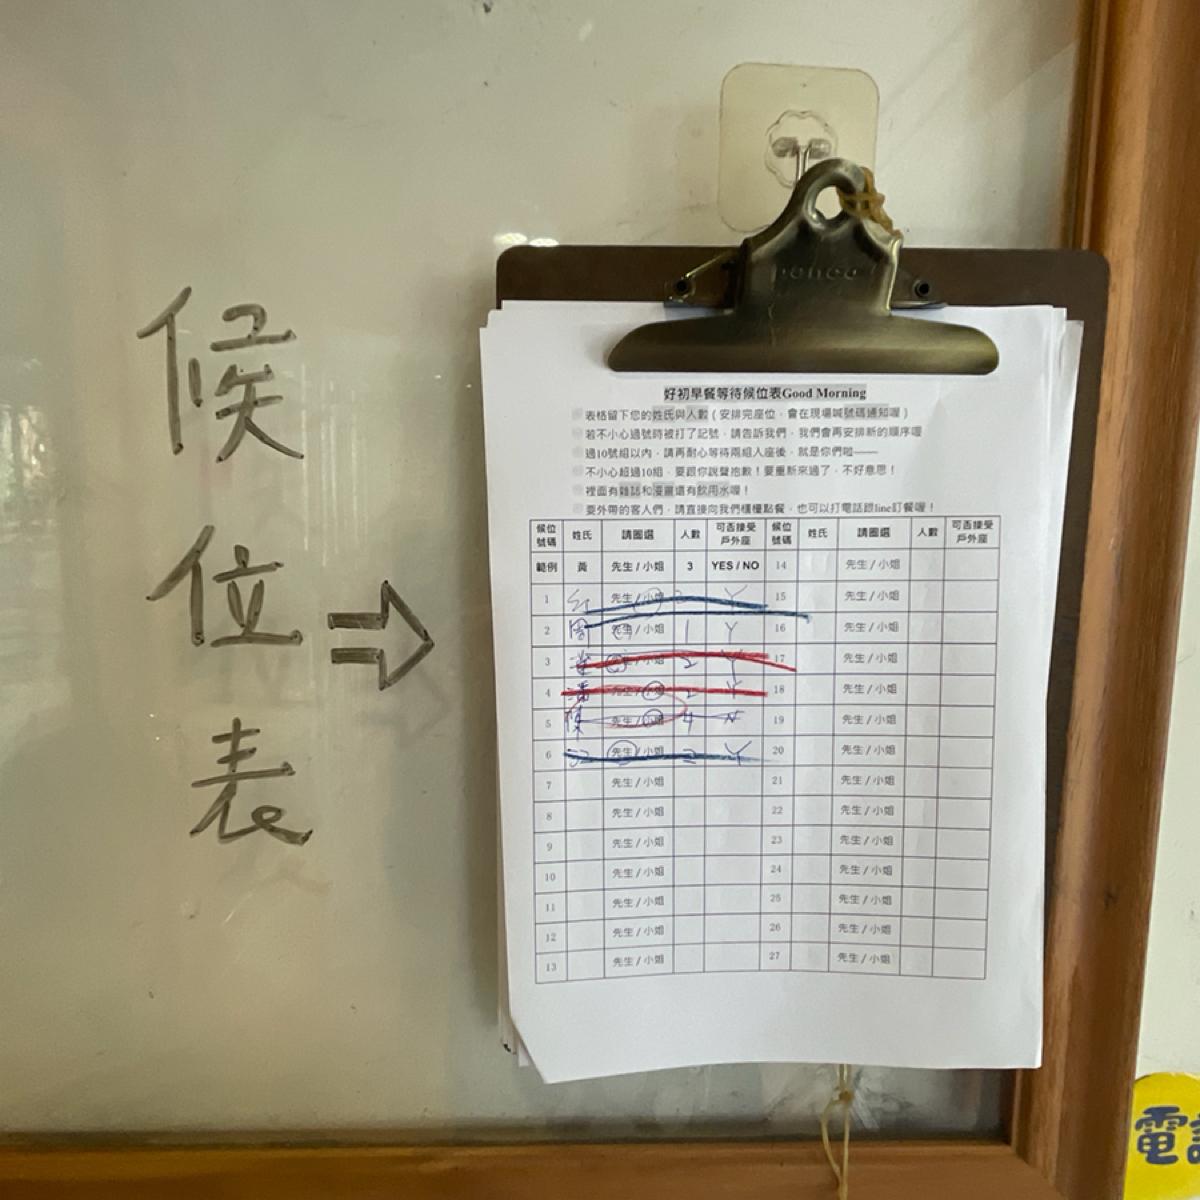 候位表
penco
好初早餐等待候位表Good Morning
表格留下您的姓氏與人數（安排完座位，會在現場喊號碼通知喔）
若不小心過號時被打了記號，請告訴我們，我們會再安排新的順序喔
過10號組以內，請再耐心等待兩組入座後，就是你們啦——
不小心超過10組，要跟你說聲抱歉！要重新來過了，不好意思！
裡面有雜誌和漫畫還有飲用水喔！
要外帶的客人們，請直接向我們櫃檯點餐，也可以打電話跟line訂餐喔！
候位號碼 姓氏 請圈選 人數 可否接受戶外座 候位號碼 姓氏 請圈選 人數 可否接受戶外座
範例 黃 先生 / 小姐 3 YES / NO 14 先生 / 小姐
1 先生 / 小姐 2 Y 15 先生 / 小姐
2 周 先生 / 小姐 1 Y 16 先生 / 小姐
3 先生 / 小姐 2 Y 17 先生 / 小姐
4 潘 先生 / 小姐 2 Y 18 先生 / 小姐
5 先生 / 小姐 4 N 19 先生 / 小姐
6 先生 / 小姐 2 Y 20 先生 / 小姐
7 先生 / 小姐 21 先生 / 小姐
8 先生 / 小姐 22 先生 / 小姐
9 先生 / 小姐 23 先生 / 小姐
10 先生 / 小姐 24 先生 / 小姐
11 先生 / 小姐 25 先生 / 小姐
12 先生 / 小姐 26 先生 / 小姐
13 先生 / 小姐 27 先生 / 小姐
電